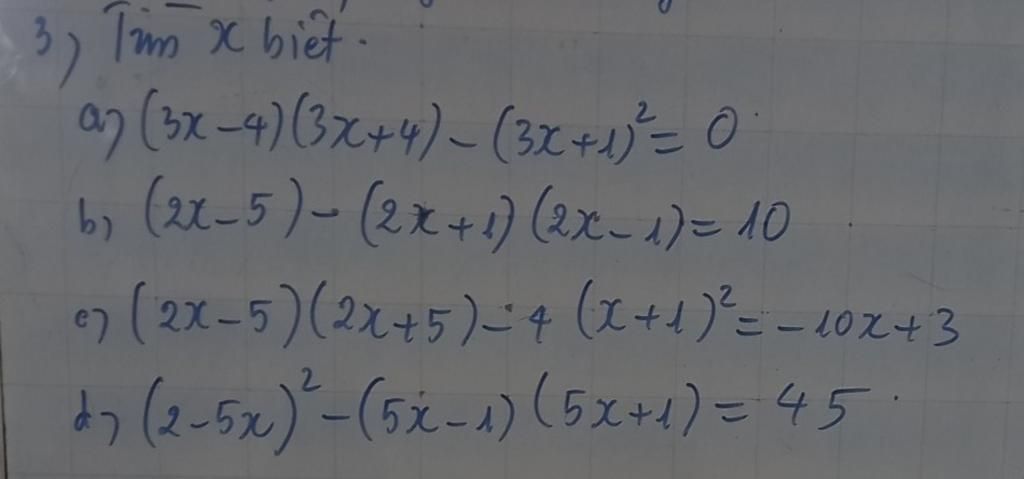 3) Tìm x biết.
a) (3x-4)(3x+4) - (3x+1)² = 0
b) (2x-5) - (2x+1)(2x-1) = 10
c) (2x-5)(2x+5) - 4(x+1)² = -10x+3
d) (2-5x)² - (5x-1)(5x+1) = 45